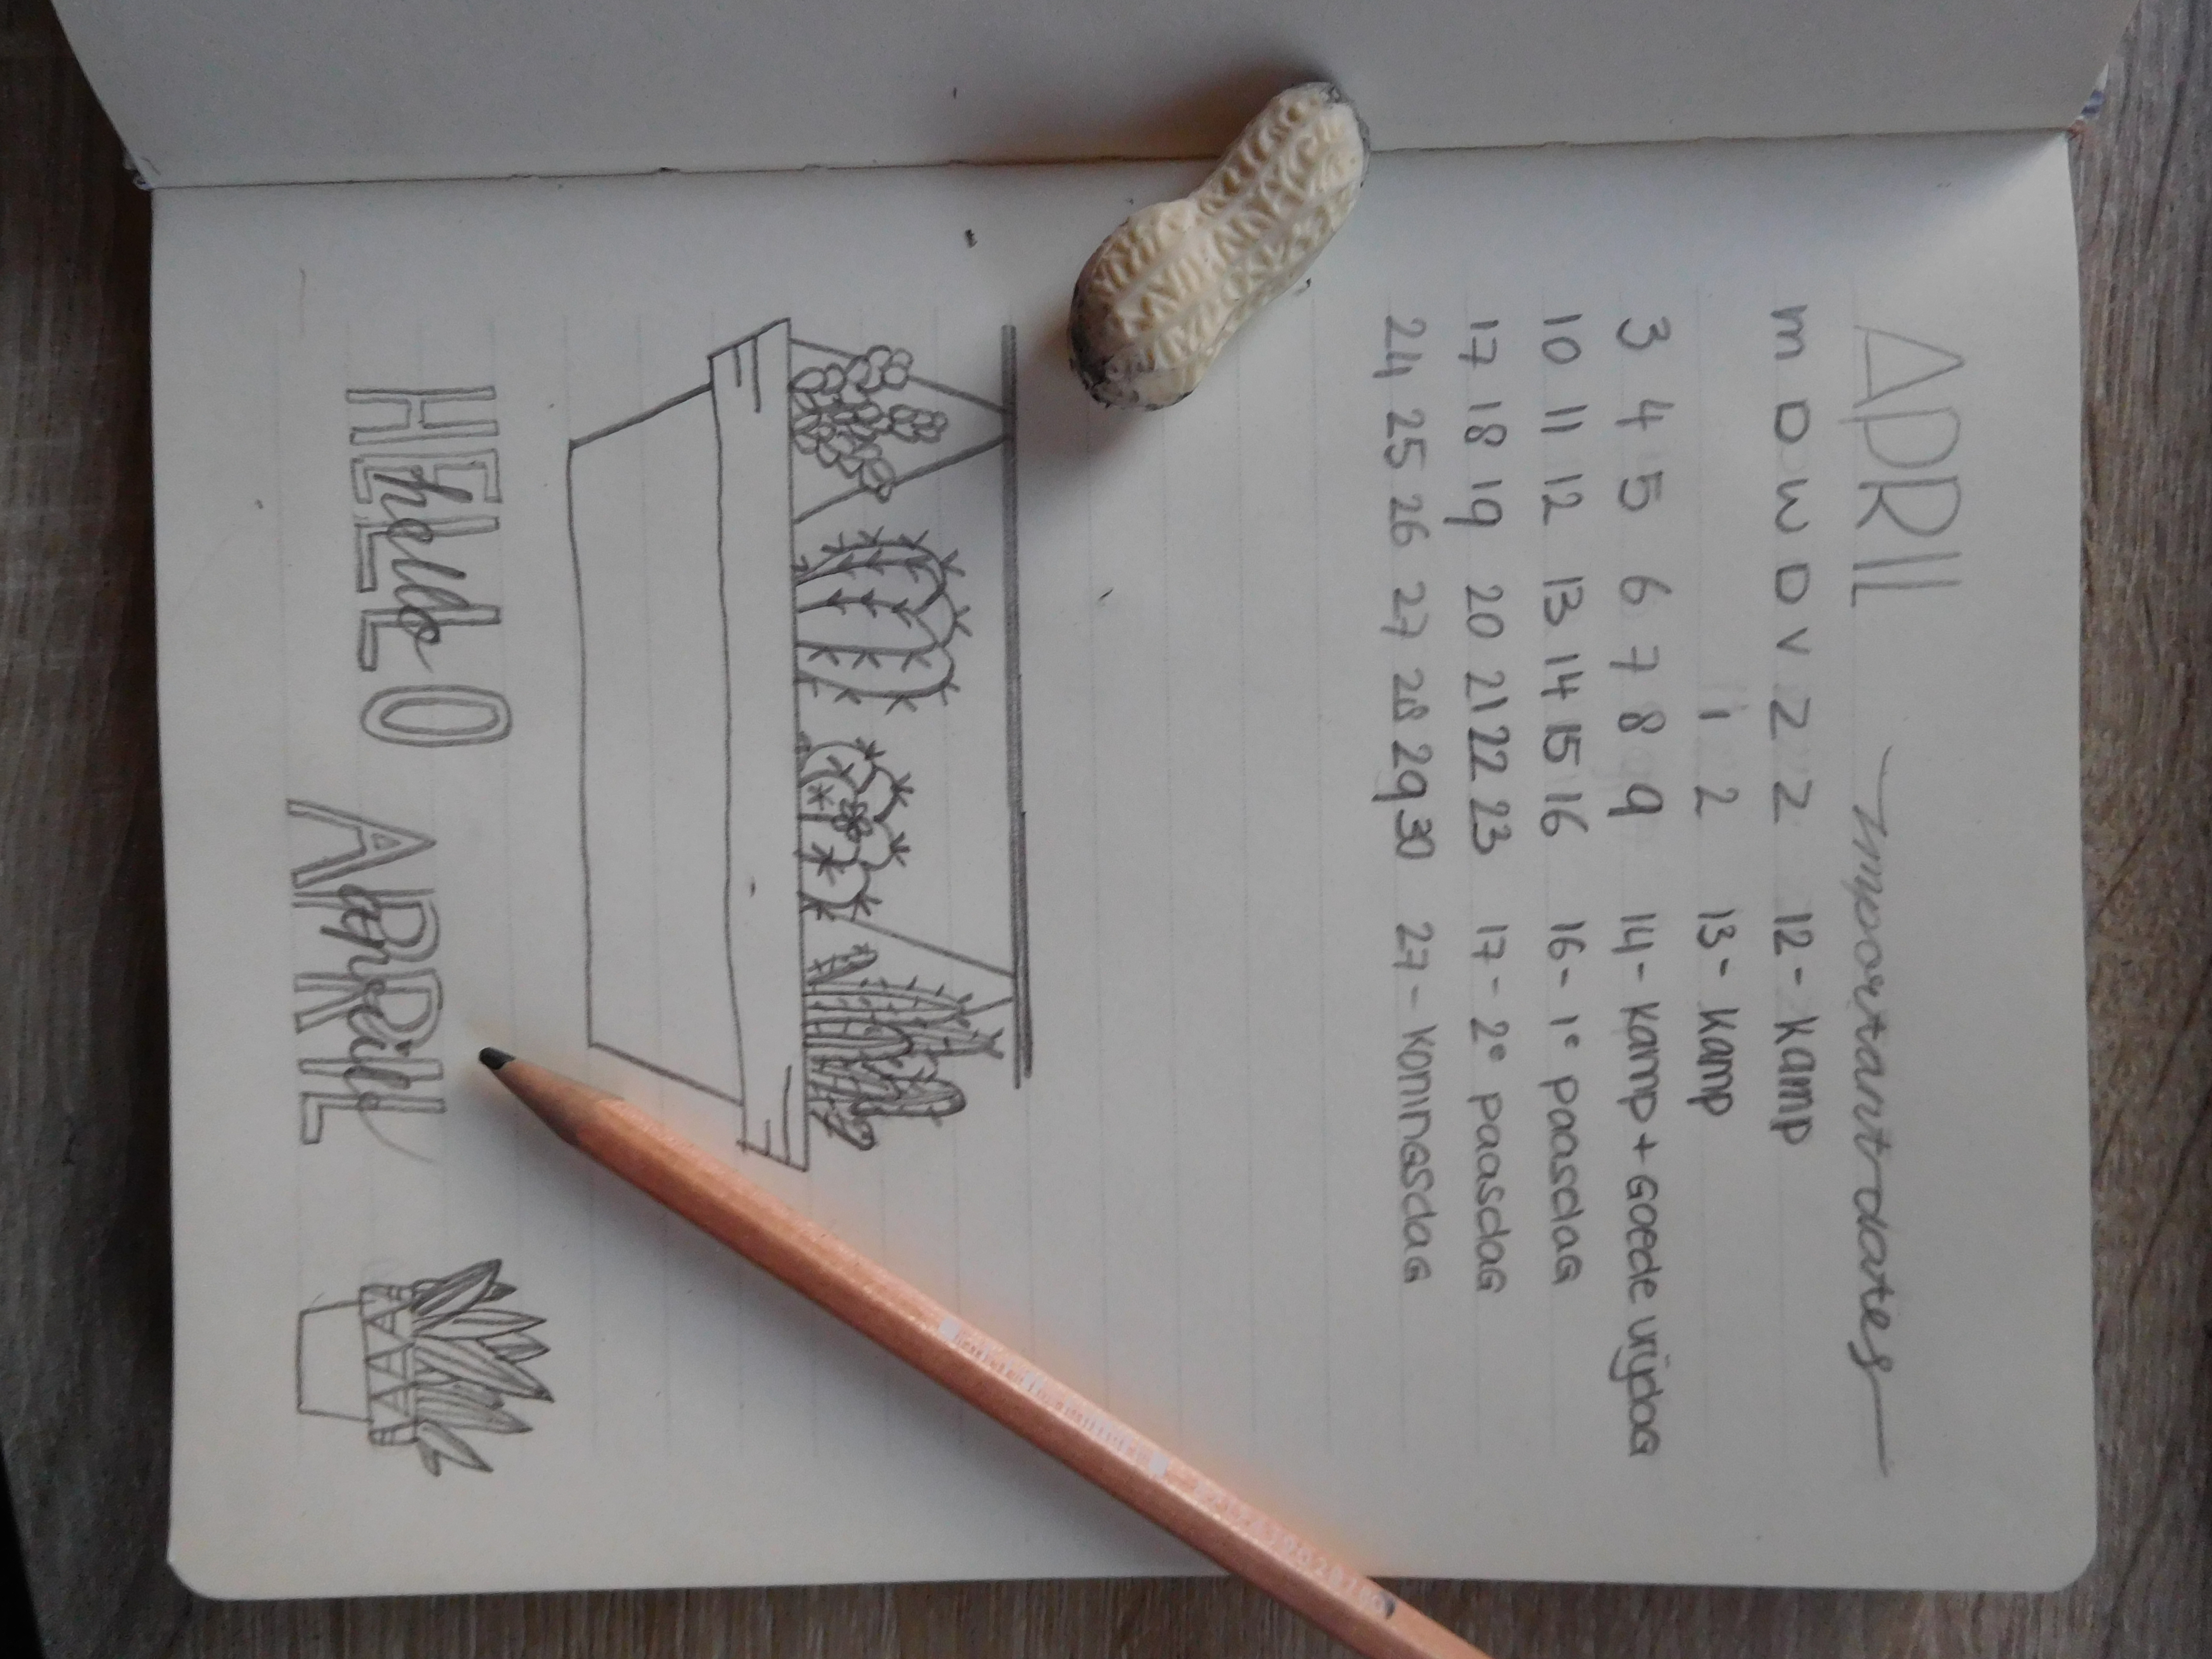 APRIL important dates
m D w D v z z 12 - kamp
1 2 13 - kamp
3 4 5 6 7 8 9 14 - kamp + Goede vrijdag
10 11 12 13 14 15 16 16 - 1e paasdag
17 18 19 20 21 22 23 17 - 2e paasdag
24 25 26 27 28 29 30 27 - koningsdag
HELLO APRIL
hello april